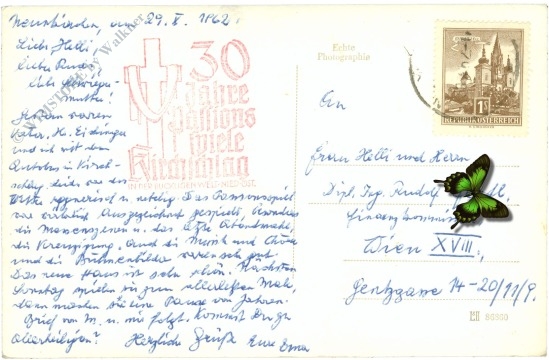 Neunkirchen, am 29. X. 1962.
Liebe Helli,
lieber Rudi,
liebe Schwieger-
mutter!
waren
Vater, H. Eidinger
und ich mit dem
Autobus in Kirch-
schlag, leider war das
Wetter regnerisch u. neblig. Das Passionsspiel
war ausgezeichnet gespielt, besonders
die u. das letzte Abendmahl,
die Kreuzigung. Auch die Musik und Chöre
und die Bühnenbilder waren sehr gut.
Das neue Haus ist sehr schön. Nächsten
Sonntag spielen sie zum allerletzten Mal,
dann machen sie eine Pause von Jahren.
Brief von M. u. mir folgt. Kommst Du zu
Allerheiligen? Herzliche Grüße Eure Erna
30
Jahre
Passions
spiele
Kirchschlag
IN DER BUCKLIGEN WELT, NIED.-ÖST.
Echte
Photographie
1S
REPUBLIK ÖSTERREICH
An
Herrn Helli und Herrn
Dipl. Ing. Rudolf
Wien XVIII,
Gentzgasse 14-20/11/9.
86360
© WHISTORY by Walkner